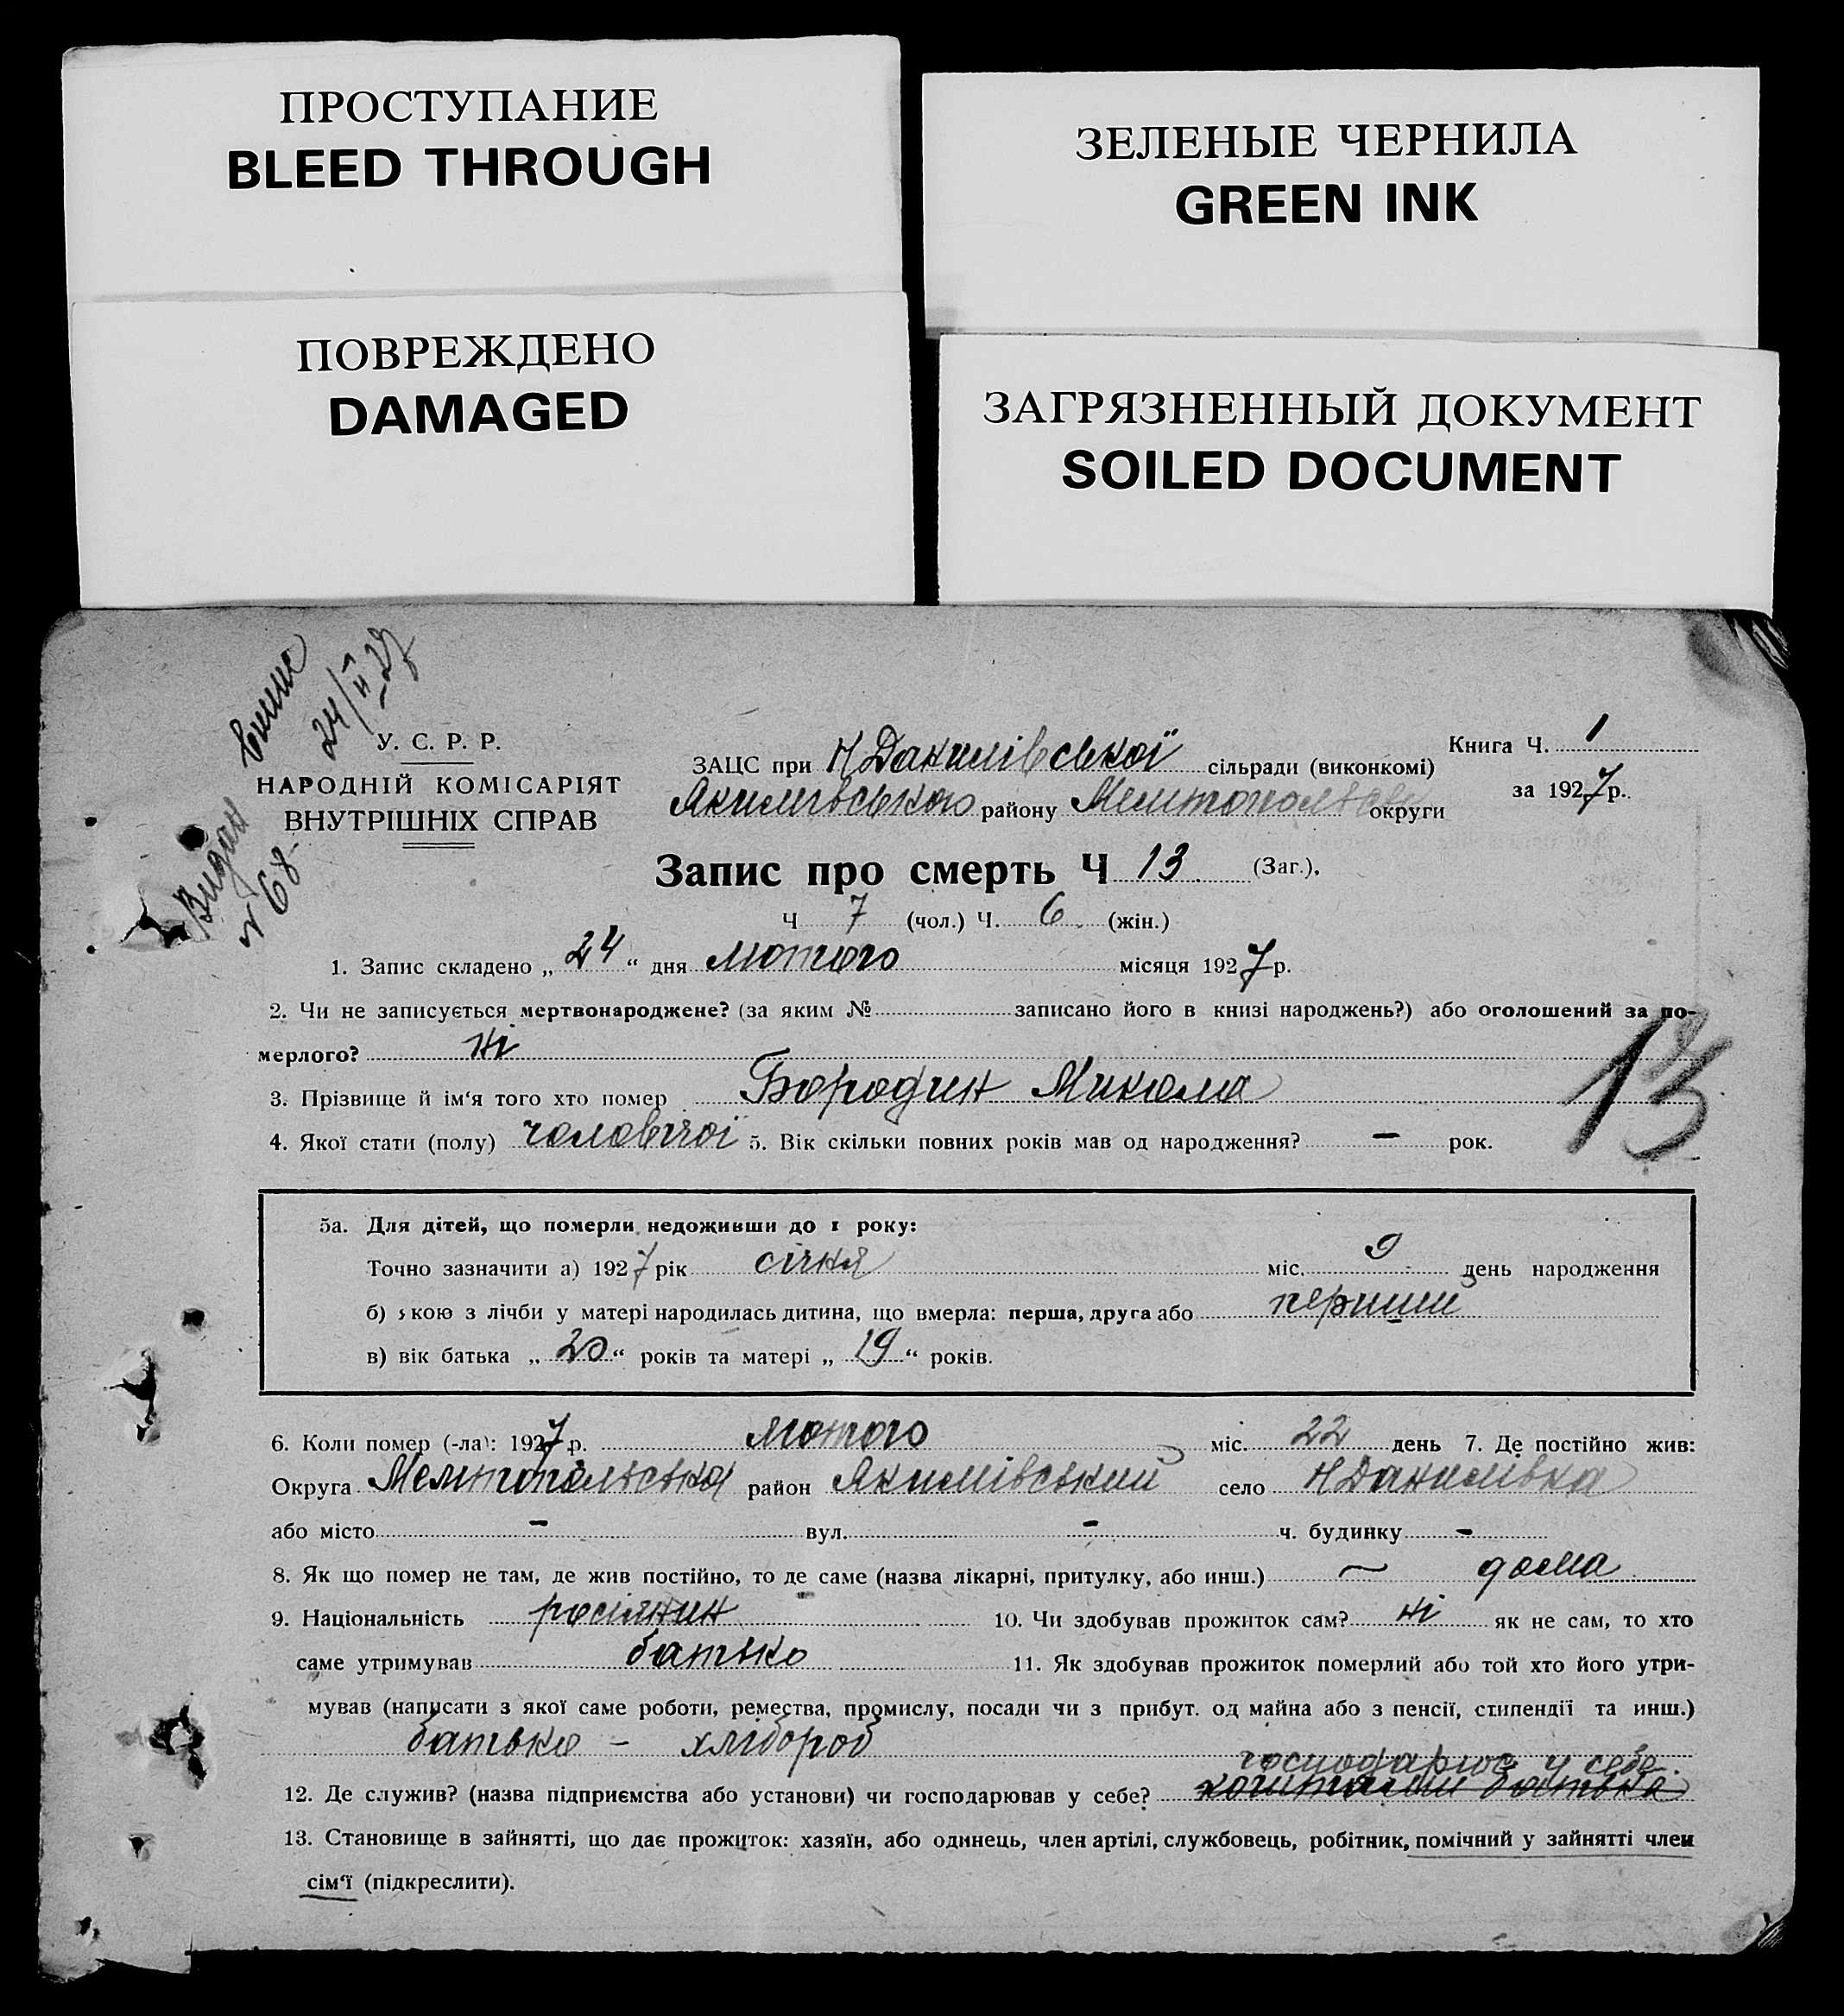 ПРОСТУПАНИЕ
BLEED THROUGH
ЗЕЛЕНЫЕ ЧЕРНИЛА
GREEN INK
ПОВРЕЖДЕНО
DAMAGED
ЗАГРЯЗНЕННЫЙ ДОКУМЕНТ
SOILED DOCUMENT
24/II-27
Видан
№ 68
У. С. Р. Р.
НАРОДНІЙ КОМІСАРІЯТ
ВНУТРІШНІХ СПРАВ
Книга Ч. 1
за 1927 р.
ЗАЦС при Н Данилівської сільради (виконкомі)
Якимівського району Мелитопольської округи
Запис про смерть Ч 13 (Заг.).
Ч 7 (чол.) Ч. 6 (жін.)
1. Запис складено „ 24 “ дня лютого місяця 1927 р.
2. Чи не записується мертвонароджене? (за яким № записано його в книзі народжень?) або оголошений за по-
мерлого? ні
13
3. Прізвище й ім‘я того хто помер Бородин Микола
4. Якої стати (полу) чоловічої 5. Вік скільки повних років мав од народження? — рок.
5а. Для дітей, що померли недоживши до 1 року:
Точно зазначити а) 1927 рік січня міс. 9 день народження
б) якою з лічби у матері народилась дитина, що вмерла: перша, друга або перший
в) вік батька „ 20 “ років та матері „ 19 “ років.
6. Коли помер (-ла): 1927 р. лютого міс. 22 день 7. Де постійно жив:
Округа Мелитопольська район Якимівський село Н Данилівка
або місто - вул. - ч. будинку -
8. Як що помер не там, де жив постійно, то де саме (назва лікарні, притулку, або инш.) ~ дома
9. Національність росіянин 10. Чи здобував прожиток сам? ні як не сам, то хто
саме утримував батько 11. Як здобував прожиток померлий або той хто його утри-
мував (написати з якої саме роботи, ремества, промислу, посади чи з прибут. од майна або з пенсії, стипендії та инш.)
батько - хлібороб
господарює у себе.
12. Де служив? (назва підприємства або установи) чи господарював у себе? батька
13. Становище в зайнятті, що дає прожиток: хазяїн, або одинець, член артілі, службовець, робітник, помічний у зайнятті член
сім‘ї (підкреслити).